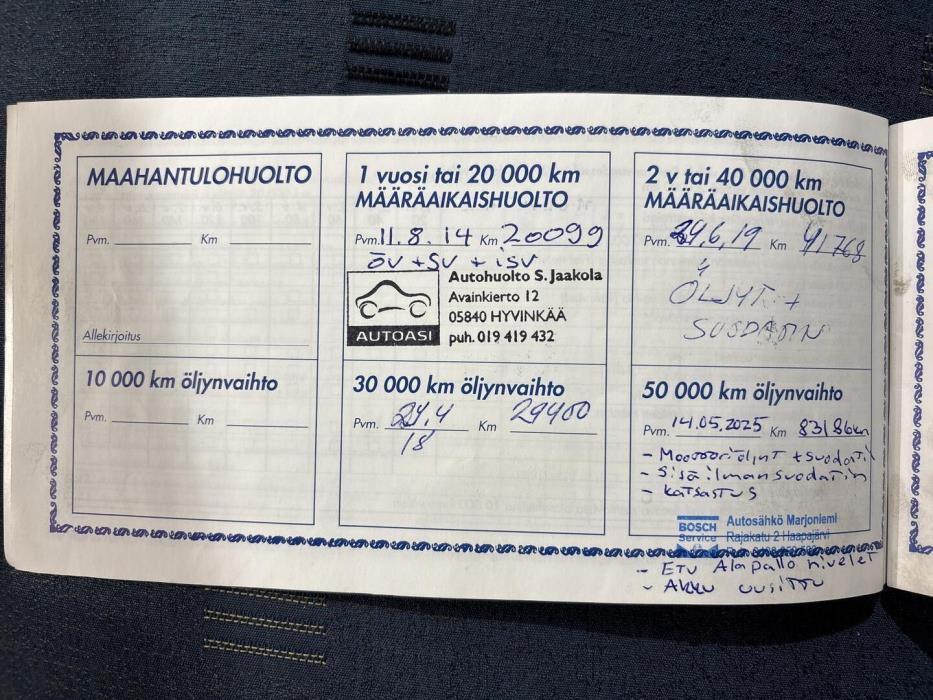 MAAHANTULOHUOLTO
Pvm. Km
Allekirjoitus
1 vuosi tai 20 000 km
MÄÄRÄAIKAISHUOLTO
Pvm. 11.8.14 Km 20099
ÖV + SV + iSV
Autohuolto S. Jaakola
Avainkierto 12
05840 HYVINKÄÄ
puh. 019 419 432
AUTOASI
2 v tai 40 000 km
MÄÄRÄAIKAISHUOLTO
Pvm. 24,6,19 Km 41768
ÖLJYT +
SUODATIN
10 000 km öljynvaihto
Pvm. Km
30 000 km öljynvaihto
Pvm. 24.4 Km 29400
18
50 000 km öljynvaihto
Pvm. 14.05.2025 Km 83186km
- Moottoriöljyt + suodatin
- Sisäilmansuodatin
- Katsastus
BOSCH
Service
Autosähkö Marjoniemi
Rajakatu 2 Haapajärvi
- ETU Alapallo nivelet
- Akku uusittu